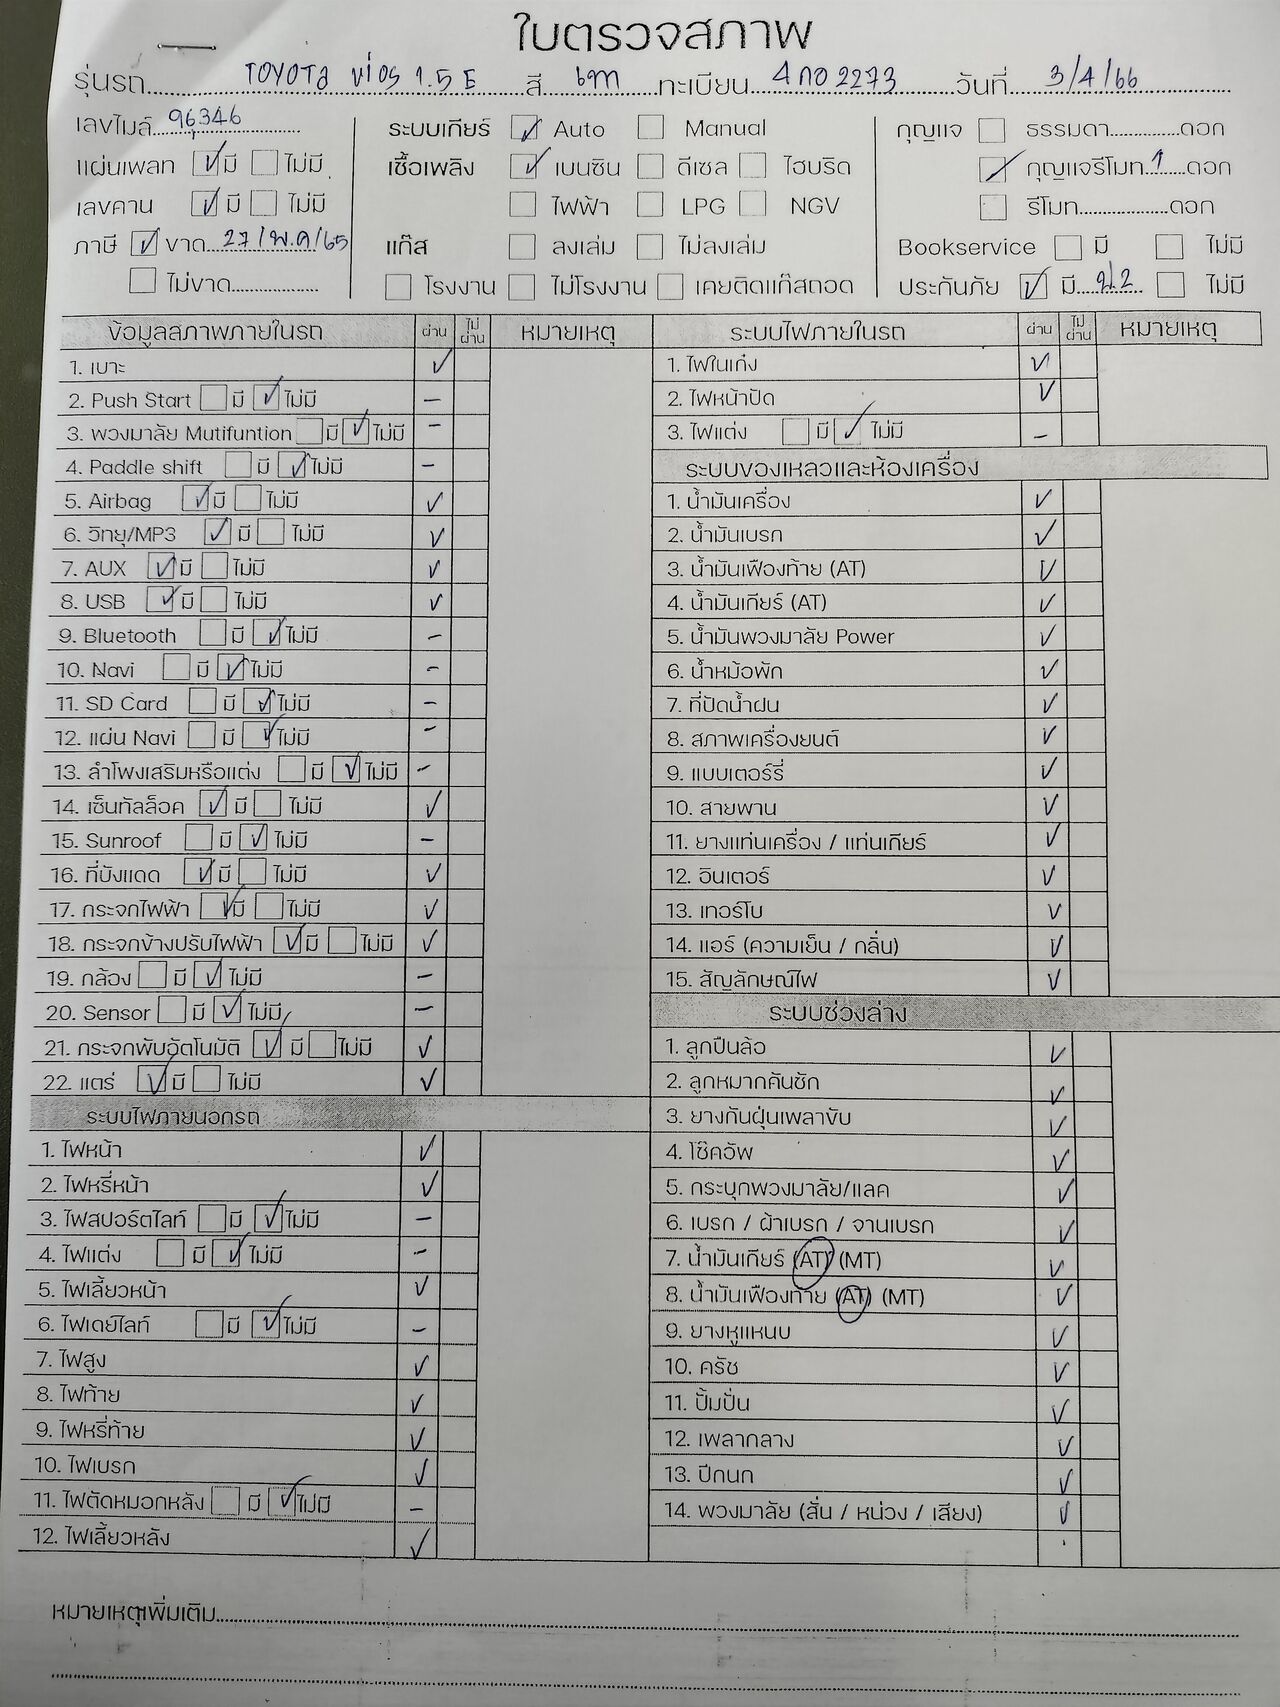 ใบตรวจสภาพ
รุ่นรถ TOYOTA Vios 1.5 E สี เทา ทะเบียน 4กอ 2273 วันที่ 3/4/66
เลขไมล์ 96346
แผ่นเพลท ✓ มี ไม่มี
เลขคาน ✓ มี ไม่มี
ภาษี ✓ ขาด 27/พ.ค/65
ไม่ขาด
ระบบเกียร์ ✓ Auto Manual
เชื้อเพลิง ✓ เบนซิน ดีเซล ไฮบริด
ไฟฟ้า LPG NGV
แก๊ส ลงเล่ม ไม่ลงเล่ม
โรงงาน ไม่โรงงาน เคยติดแก๊สถอด
กุญแจ ธรรมดา ดอก
✓ กุญแจรีโมท 1 ดอก
รีโมท ดอก
Bookservice มี ไม่มี
ประกันภัย ✓ มี ไม่มี
ข้อมูลสภาพภายในรถ ผ่าน ไม่ผ่าน หมายเหตุ
1. เบาะ ✓
2. Push Start มี ✓ ไม่มี –
3. พวงมาลัย Mutifuntion มี ✓ ไม่มี –
4. Paddle shift มี ✓ ไม่มี –
5. Airbag ✓ มี ไม่มี ✓
6. วิทยุ/MP3 ✓ มี ไม่มี ✓
7. AUX ✓ มี ไม่มี ✓
8. USB ✓ มี ไม่มี ✓
9. Bluetooth มี ✓ ไม่มี –
10. Navi มี ✓ ไม่มี –
11. SD Card มี ✓ ไม่มี –
12. แผ่น Navi มี ✓ ไม่มี –
13. ลำโพงเสริมหรือแต่ง มี ✓ ไม่มี –
14. เซ็นทัลล็อค ✓ มี ไม่มี ✓
15. Sunroof มี ✓ ไม่มี –
16. ที่บังแดด ✓ มี ไม่มี ✓
17. กระจกไฟฟ้า ✓ มี ไม่มี ✓
18. กระจกข้างปรับไฟฟ้า ✓ มี ไม่มี ✓
19. กล้อง มี ✓ ไม่มี –
20. Sensor มี ✓ ไม่มี –
21. กระจกพับอัตโนมัติ ✓ มี ไม่มี ✓
22. แตร่ ✓ มี ไม่มี ✓
ระบบไฟภายนอกรถ
1. ไฟหน้า ✓
2. ไฟหรี่หน้า ✓
3. ไฟสปอร์ตไลท์ มี ✓ ไม่มี –
4. ไฟแต่ง มี ✓ ไม่มี –
5. ไฟเลี้ยวหน้า ✓
6. ไฟเดย์ไลท์ มี ✓ ไม่มี –
7. ไฟสูง ✓
8. ไฟท้าย ✓
9. ไฟหรี่ท้าย ✓
10. ไฟเบรก ✓
11. ไฟตัดหมอกหลัง มี ✓ ไม่มี –
12. ไฟเลี้ยวหลัง ✓
ระบบไฟภายในรถ ผ่าน ไม่ผ่าน หมายเหตุ
1. ไฟในเก๋ง ✓
2. ไฟหน้าปัด ✓
3. ไฟแต่ง มี ✓ ไม่มี –
ระบบของเหลวและห้องเครื่อง
1. น้ำมันเครื่อง ✓
2. น้ำมันเบรก ✓
3. น้ำมันเฟืองท้าย (AT) ✓
4. น้ำมันเกียร์ (AT) ✓
5. น้ำมันพวงมาลัย Power ✓
6. น้ำหม้อพัก ✓
7. ที่ปัดน้ำฝน ✓
8. สภาพเครื่องยนต์ ✓
9. แบบเตอร์รี่ ✓
10. สายพาน ✓
11. ยางแท่นเครื่อง / แท่นเกียร์ ✓
12. อินเตอร์ ✓
13. เทอร์โบ ✓
14. แอร์ (ความเย็น / กลิ่น) ✓
15. สัญลักษณ์ไฟ ✓
ระบบช่วงล่าง
1. ลูกปืนล้อ ✓
2. ลูกหมากคันชัก ✓
3. ยางกันฝุ่นเพลาขับ ✓
4. โช๊คอัพ ✓
5. กระบุกพวงมาลัย/แลค ✓
6. เบรก / ผ้าเบรก / จานเบรก ✓
7. น้ำมันเกียร์ (AT) (MT) ✓
8. น้ำมันเฟืองท้าย (AT) (MT) ✓
9. ยางหูแหนบ ✓
10. ครัช ✓
11. ปั้มปั่น ✓
12. เพลากลาง ✓
13. ปีกนก ✓
14. พวงมาลัย (สั่น / หน่วง / เสียง) ✓
หมายเหตุเพิ่มเติม